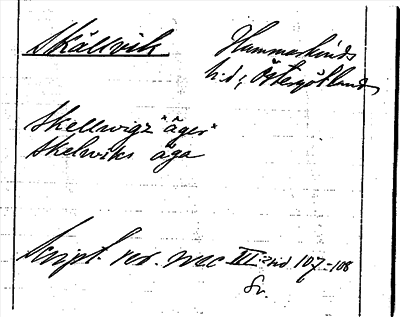 Skällvik
Hammarkinds
h:d, Östergötland
Skellwigz "äger"
Skelwiks äga
Script. rer. svec III:2nd 107-108
Sv.